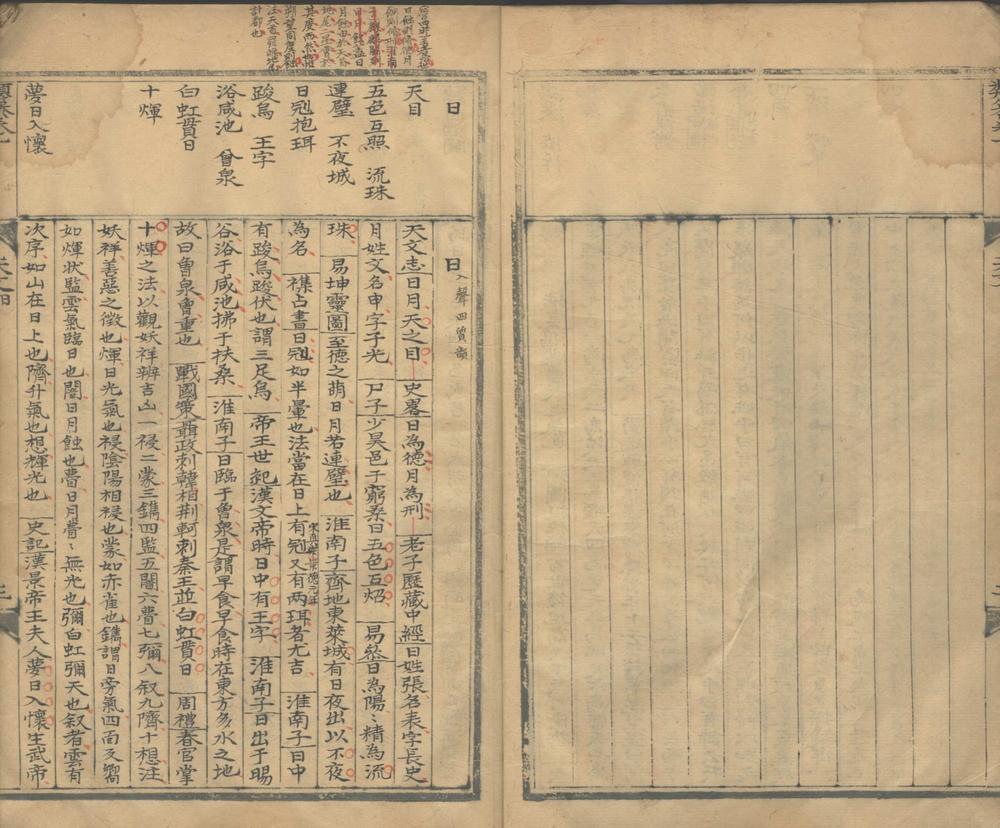 日
天目
五色互照　流珠
連璧　不夜城
日冠抱珥
踆烏　王字
浴咸池　曾泉
白虹貫日
十煇
夢日入懷
日 入聲四質韻
天文志日月天之目　史畧日為德月為刑　老子歷藏中經日姓張名表字長史
月姓文名申字子光　尸子少昊邑于窮桑日五色互炤　易叅日為陽〻精為流
珠　易坤靈圖至德之萌日月若連璧也　淮南子齊地東萊城有日夜出以不夜
為名　襍占書日冠如半暈也法當在日上有冠又有兩珥者尤吉　淮南子日中
有踆烏踆伏也謂三足烏　帝王世紀漢文帝時日中有王字　淮南子日出于暘
谷浴于咸池拂于扶桑　淮南子日臨于曾泉是謂早食早食時在東方多水之地
故曰曾泉曾重也　戰國策聶政刺韓相荆軻刺秦王並白虹貫日　周禮春官掌
十煇之法以觀妖祥辨吉凶一祲二蒙三鐫四監五闇六瞢七彌八叙九隮十想注
妖祥善惡之徵也煇日光氣也祲陰陽相祲也蒙如赤雀也鐫謂日旁氣四面反嚮
如煇狀監雲氣臨日也闇日月蝕也瞢日月瞢〻無光也彌白虹彌天也叙者雲有
次序如山在日上也隮升氣也想輝光也　史記漢景帝王夫人夢日入懷生武帝